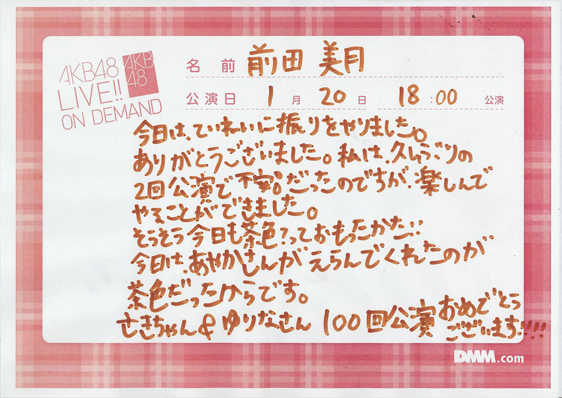 AKB48
LIVE!!
ON DEMAND
AKB
48
名前 前田 美月
公演日 1月 20日 18:00 公演
今日は、ていねいに振りをやりました。
ありがとうございました。私は、久しぶりの
2回公演で不安だったのですが、楽しんで
やることができました。
そうそう今日も茶色?っておもったかた!!
今日は、あやかさんがえらんでくれたのが
茶色だったからです。
さきちゃん&ゆりなさん 100回公演おめでとう
ございます!!!!
DMM.com